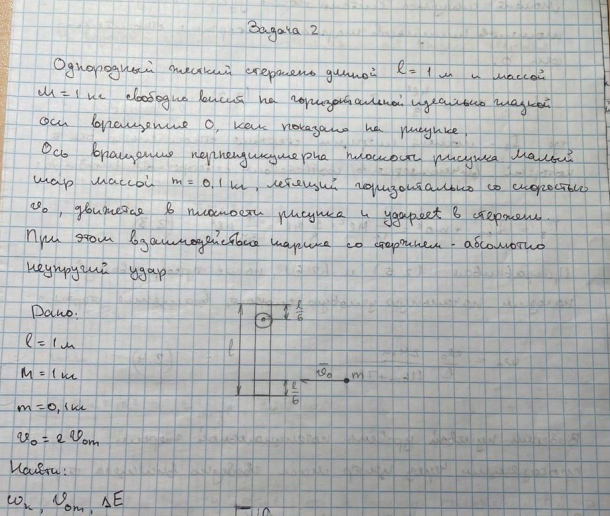 Задача 2
Однородный жесткий стержень длиной l = 1 м и массой
M = 1 кг свободно висит на горизонтальной идеально гладкой
оси вращения O, как показано на рисунке.
Ось вращения перпендикулярна плоскости рисунка Малый
шар массой m = 0,1 кг, летящий горизонтально со скоростью
v₀, движется в плоскости рисунка и ударяет в стержень.
При этом взаимодействие шарика со стержнем - абсолютно
неупругий удар
Дано:
l = 1 м
M = 1 кг
m = 0,1 кг
v₀ = 2 v₀m
Найти:
ωк, v₀m, ΔE
l/6
l
v₀ m
l/6